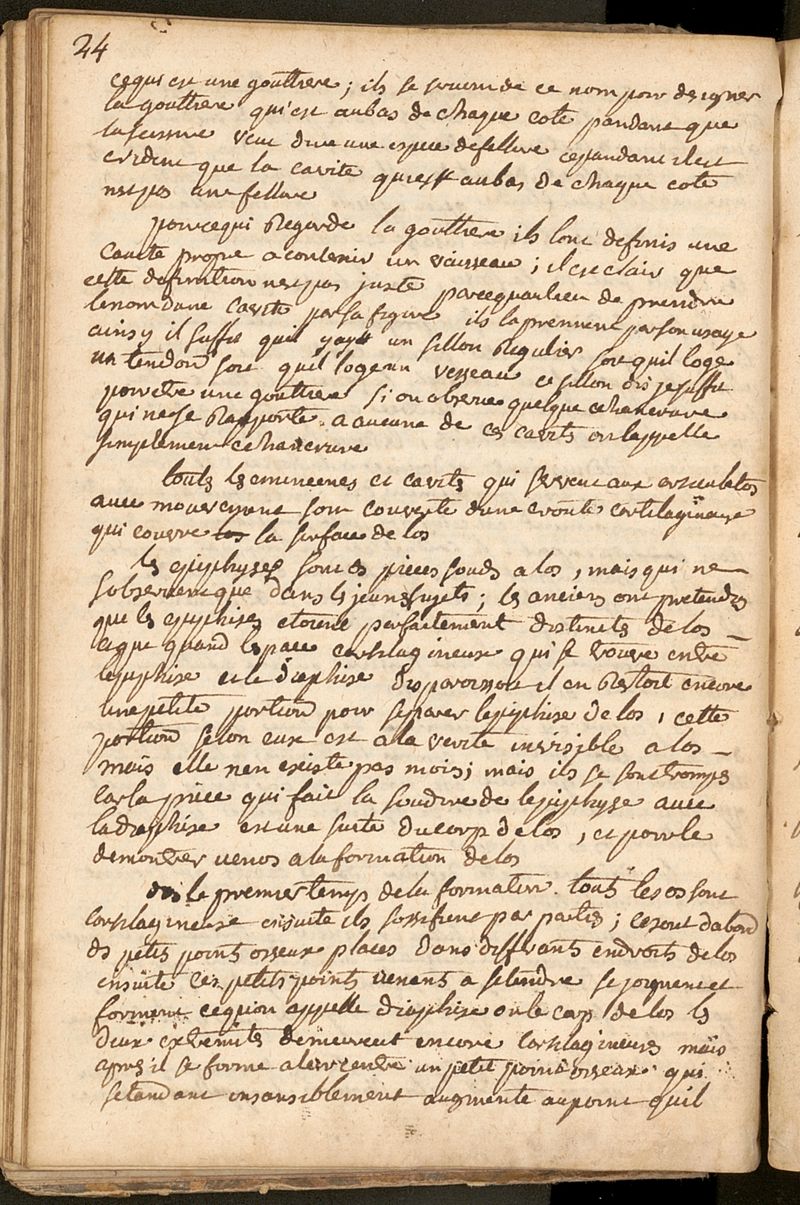 24
cequi est une gouttiere; ils se servent de ce nom pour designer
la gouttiere qui est aubas de chaque coté pandant que
veut dire une espece defellure cependant il est
evident que la cavité qui est aubas de chaque coté
nest pas une fellure
pour cequi Regarde la gouttiere ils lont definis une
cavité propre a contenir un vaisseau; il est clair que
cette definition nest pas juste parcequaulieu de prendre
lenom dune cavité par sa figure ils la prennent par son usage
ainsy il suffit quil y ayt un sillon Regulier soit quil loge
un tendon soit quil loge un vesseau ce sillon dis je suffit
pour etre une gouttiere si on observe quelque echancrure
qui nese Rapporte a aucune de ces cavités on lappelle
simplement echancrure
touts les eminences et cavités qui servent aux articulations
avec mouvement sont couverte dune croute cartilagineuse
qui couvre la surface de los
les epiphyses sont des pieces soudés a los, mais qui ne
sobservent que dans les jeunes sujets; les anciens ont pretendus
que les epiphises etoient parfaitement distincts de los
et que quand lespace cartilagineux qui se trouve entre
lepiphise et le diaphise disparoissoit il en Restoit encore
une petite portion pour separer lepiphise de los, cette
portion selon eux est a la verité invisible a los
mais elle nen existe pas moins; mais ils se sont trompés
car la piece qui fait la soudure de lepiphyse avec
ladiaphise est une suite du corp de los, et pour le
demontrer venons a la formation de los
des le premier temp de la formation touts les os sont
cartilagineux ensuite ils sossifient par parties; ce sont dabord
des petits points osseux placés dans differants endroits de los
ensuite ces petits points venant a setendre se joignent et
forment cequion appelle diaphise ou le corp de los les
deux extremités demeurent encore cartilagineuses mais
apres il se forme a leur centre un petit point osseux qui
setandant insansiblement augmente au point quil